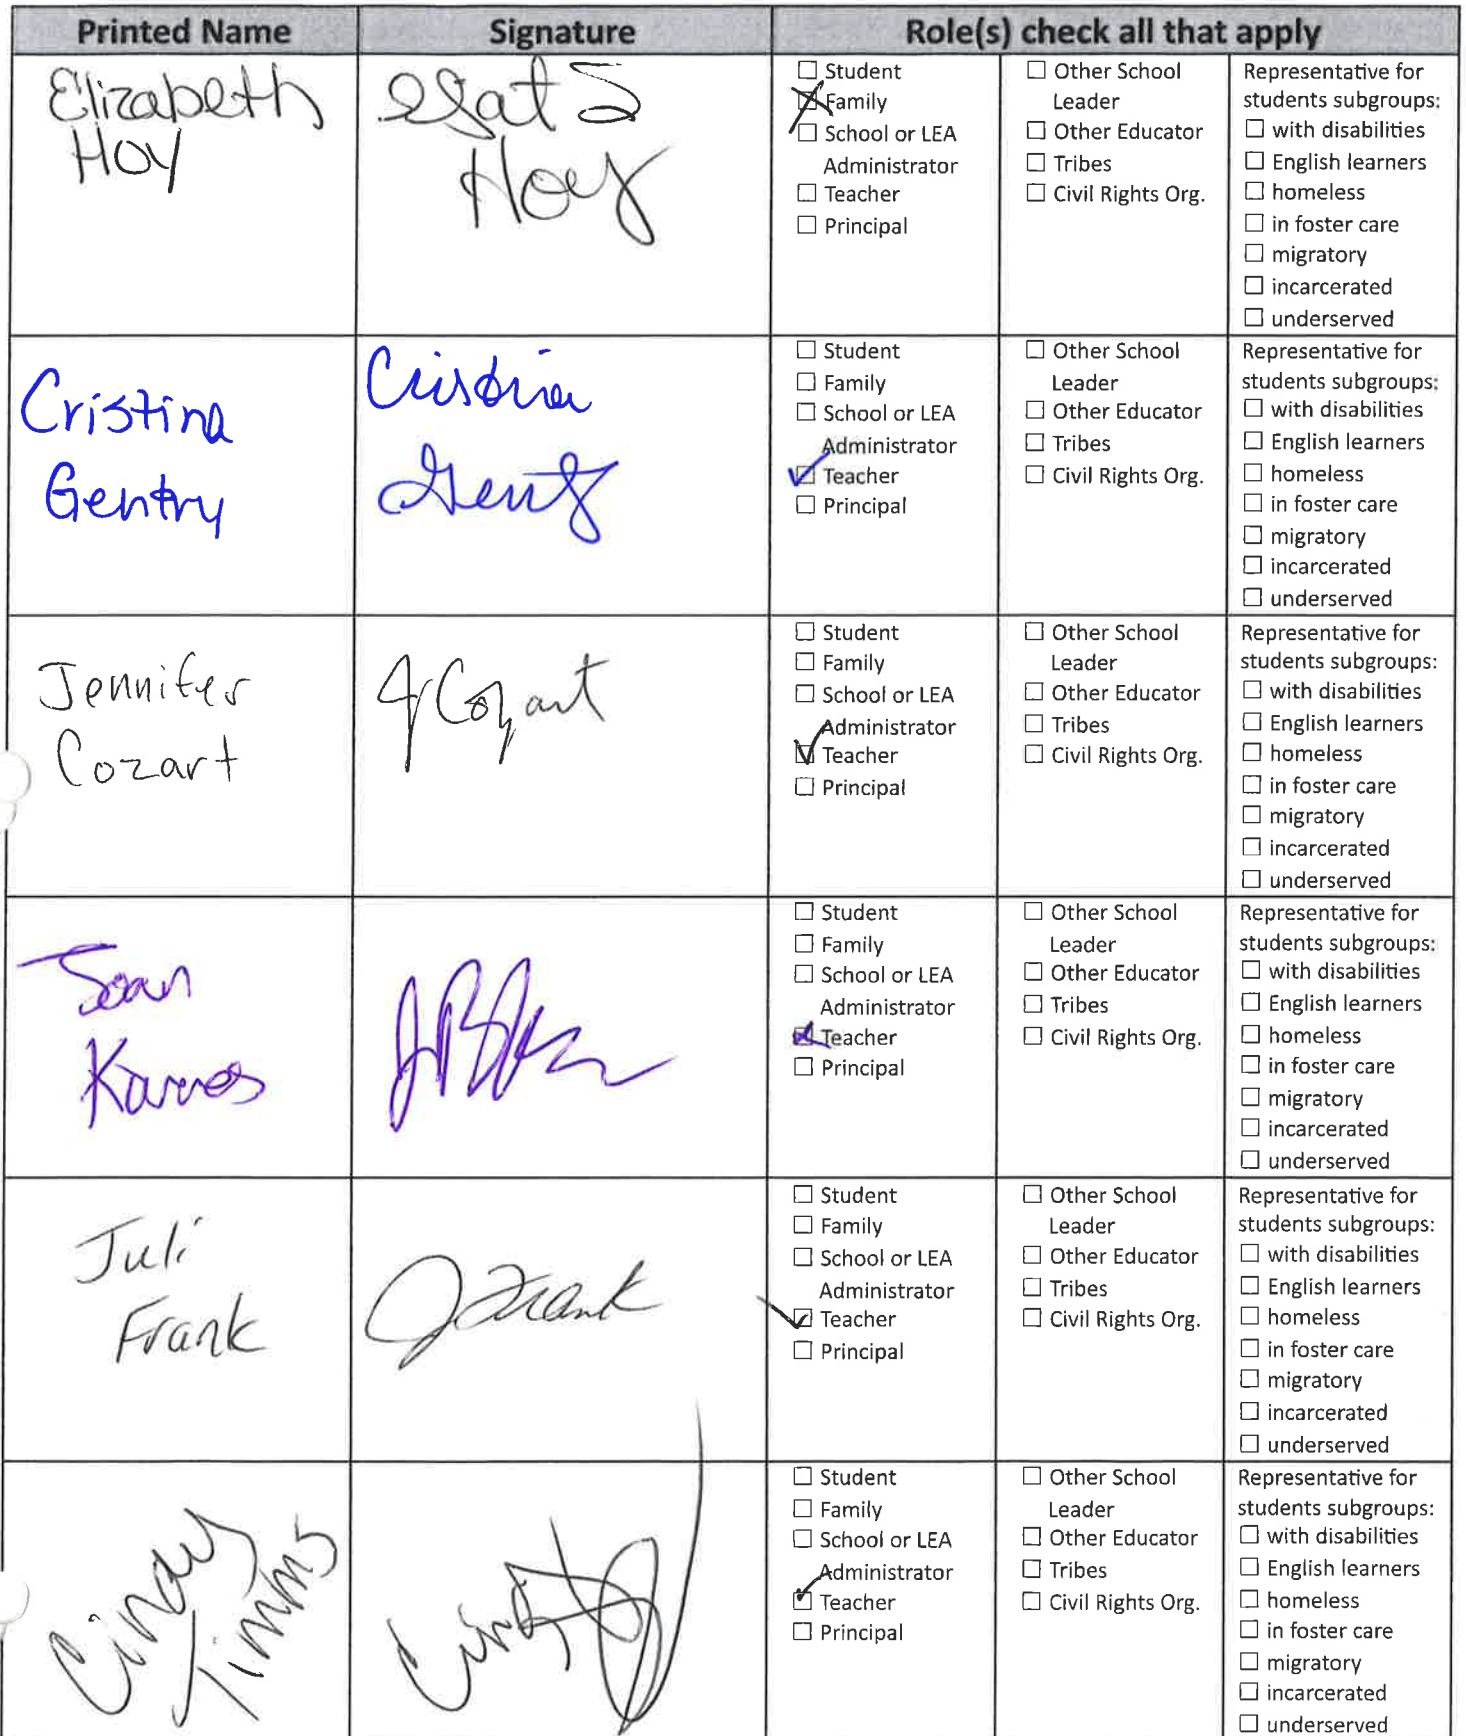 Printed Name Signature Role(s) check all that apply
Elizabeth
Hoy
Hoy
☐ Student
☒ Family
☐ School or LEA
Administrator
☐ Teacher
☐ Principal
☐ Other School
Leader
☐ Other Educator
☐ Tribes
☐ Civil Rights Org.
Representative for
students subgroups:
☐ with disabilities
☐ English learners
☐ homeless
☐ in foster care
☐ migratory
☐ incarcerated
☐ underserved
Cristina
Gentry
Cristina
Gentry
☐ Student
☐ Family
☐ School or LEA
Administrator
☑ Teacher
☐ Principal
☐ Other School
Leader
☐ Other Educator
☐ Tribes
☐ Civil Rights Org.
Representative for
students subgroups:
☐ with disabilities
☐ English learners
☐ homeless
☐ in foster care
☐ migratory
☐ incarcerated
☐ underserved
Jennifer
Cozart
J Cozart
☐ Student
☐ Family
☐ School or LEA
Administrator
☑ Teacher
☐ Principal
☐ Other School
Leader
☐ Other Educator
☐ Tribes
☐ Civil Rights Org.
Representative for
students subgroups:
☐ with disabilities
☐ English learners
☐ homeless
☐ in foster care
☐ migratory
☐ incarcerated
☐ underserved
Joan
Karros
☐ Student
☐ Family
☐ School or LEA
Administrator
☒ Teacher
☐ Principal
☐ Other School
Leader
☐ Other Educator
☐ Tribes
☐ Civil Rights Org.
Representative for
students subgroups:
☐ with disabilities
☐ English learners
☐ homeless
☐ in foster care
☐ migratory
☐ incarcerated
☐ underserved
Juli
Frank
J Frank
☐ Student
☐ Family
☐ School or LEA
Administrator
☑ Teacher
☐ Principal
☐ Other School
Leader
☐ Other Educator
☐ Tribes
☐ Civil Rights Org.
Representative for
students subgroups:
☐ with disabilities
☐ English learners
☐ homeless
☐ in foster care
☐ migratory
☐ incarcerated
☐ underserved
Cindy
Timms
☐ Student
☐ Family
☐ School or LEA
Administrator
☑ Teacher
☐ Principal
☐ Other School
Leader
☐ Other Educator
☐ Tribes
☐ Civil Rights Org.
Representative for
students subgroups:
☐ with disabilities
☐ English learners
☐ homeless
☐ in foster care
☐ migratory
☐ incarcerated
☐ underserved